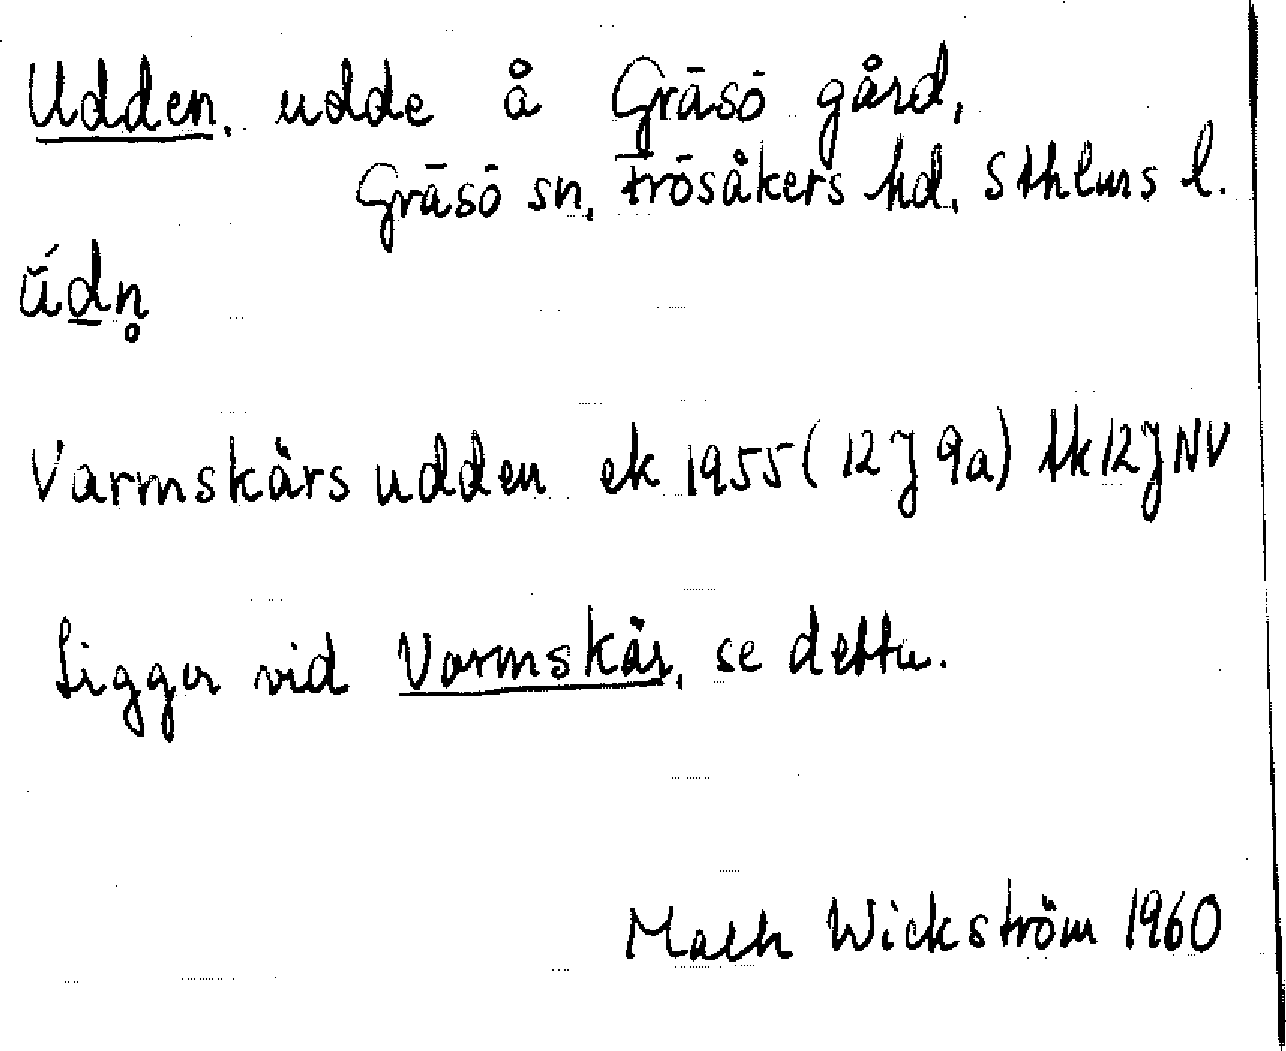 Udden, udde å Gräsö gård,
Gräsö sn, Frösåkers hd, Sthlms l.
ŭ́dn̥
Varmskärsudden ek 1955 (12J 9a) tk 12J NV
Ligger vid Varmskär, se detta.
Wickström 1960